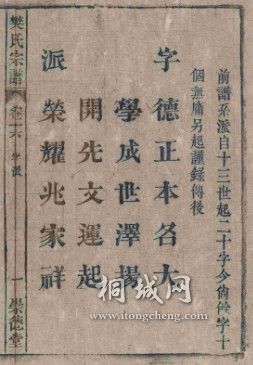 前譜系派自十三世起二十字今尚餘字十
個無庸另起謹錄傳後
字 德正本名大
學成世澤揚
開先文運起
派 榮耀兆家祥
樊氏宗譜 卷十六 字派 一 德堂
桐城网
www.itongcheng.com